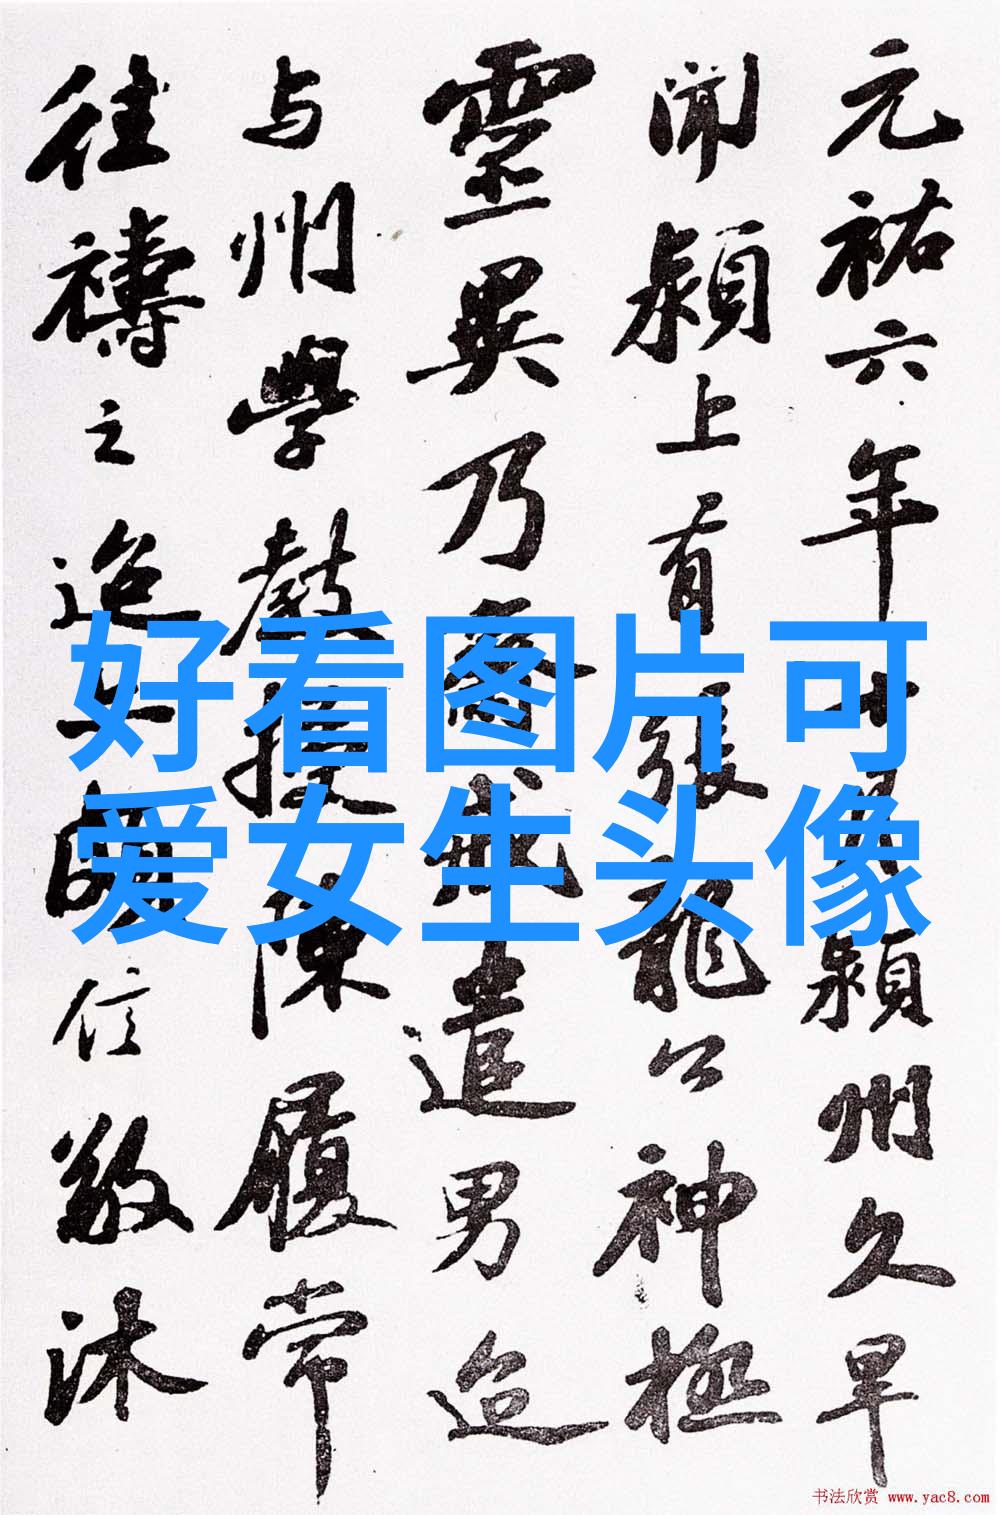 元祐六年十月潁州久旱
聞潁上有張龍公神極
靈異乃齋戒遣男迨
与州學教授陳履常
往禱之迨亦頗信敬沐
好看图片可
爱女生头像
书法欣赏 www.yac8.com